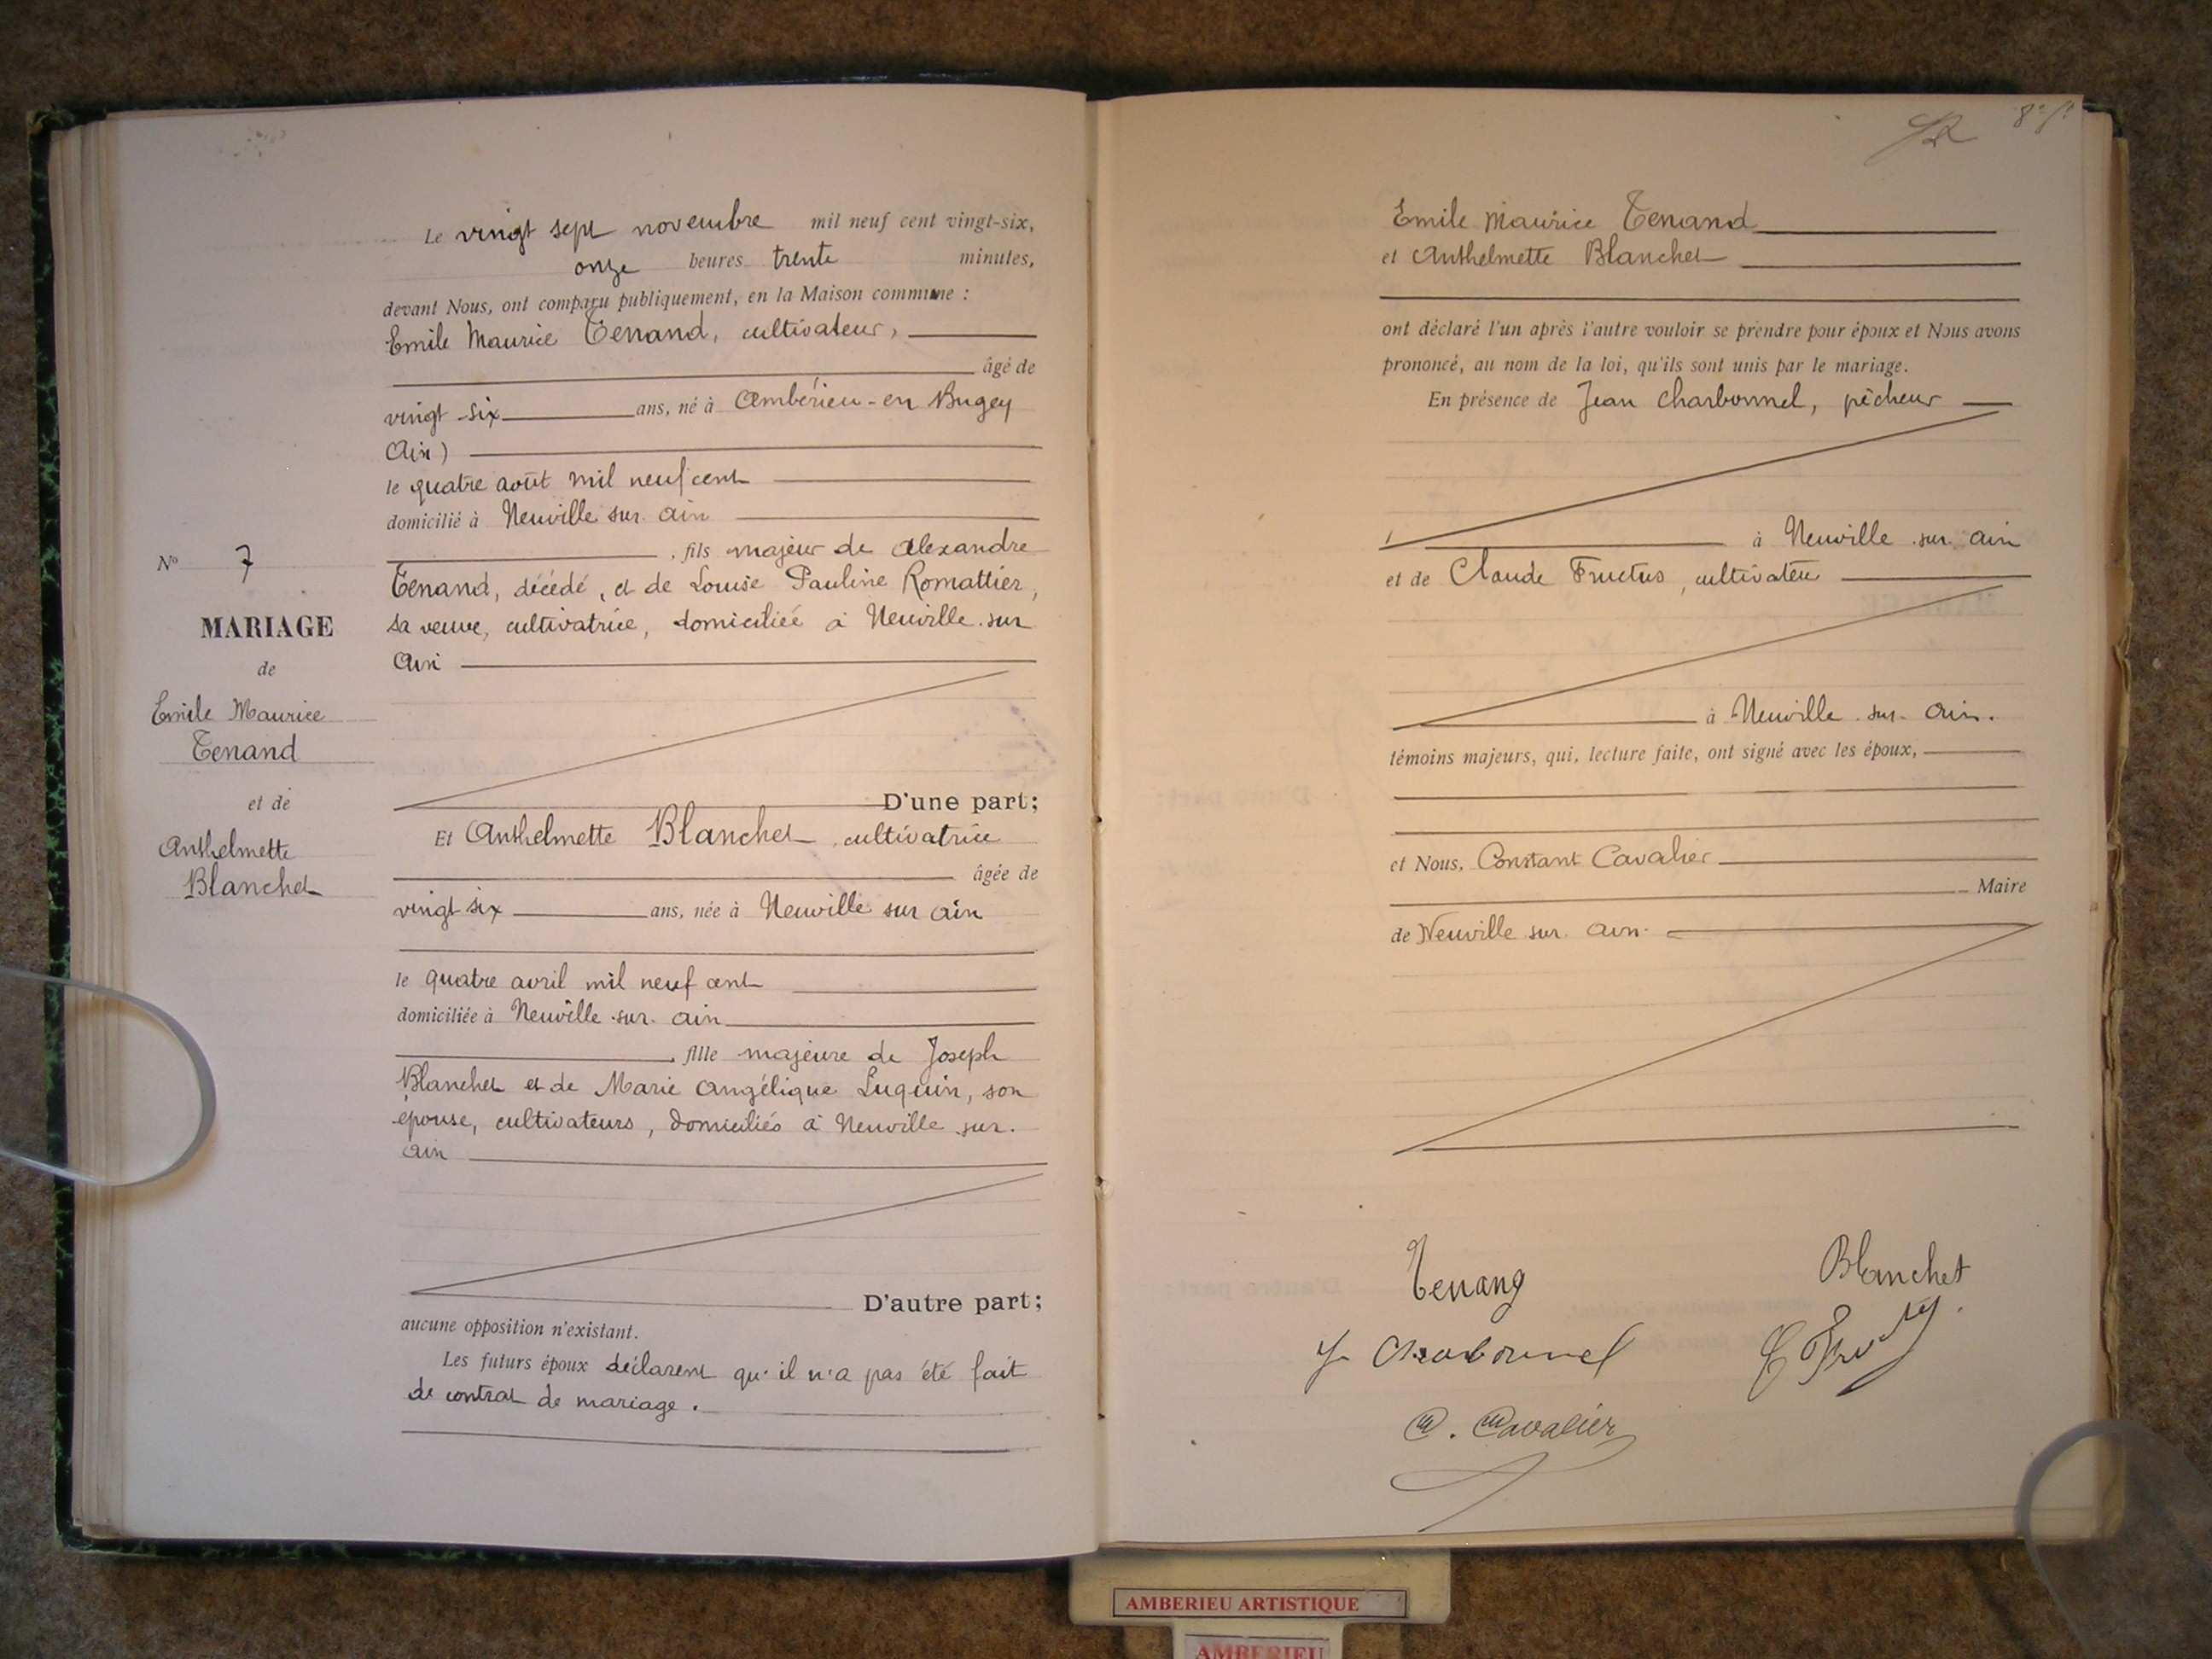 Le vingt sept novembre mil neuf cent vingt-six,
onze heures trente minutes,
devant Nous, ont comparu publiquement, en la Maison commune :
Emile Maurice Tenand, cultivateur,
âgé de
vingt-six ans, né à Ambérieu-en Bugey
Ain)
le quatre août mil neuf cent
domicilié à Neuville sur ain
, fils majeur de Alexandre
Tenand, décédé, et de Louise Pauline Romattier,
sa veuve, cultivatrice, domiciliée à Neuville-sur
Ain
D'une part;
Et Anthelmette Blanchet, cultivatrice
âgée de
vingt six ans, née à Neuville sur ain
le quatre avril mil neuf cent
domiciliée à Neuville-sur-ain
, fille majeure de Joseph
Blanchet et de Marie Angélique Luquin, son
épouse, cultivateurs, domiciliés à Neuville sur-
ain
D'autre part;
aucune opposition n'existant.
Les futurs époux déclarent qu'il n'a pas été fait
de contrat de mariage.
No 7
MARIAGE
de
Emile Maurice
Tenand
et de
Anthelmette
Blanchet
Emile Maurice Tenand
et Anthelmette Blanchet
ont déclaré l'un après l'autre vouloir se prendre pour époux et Nous avons
prononcé, au nom de la loi, qu'ils sont unis par le mariage.
En présence de Jean Charbonnel, pêcheur
à Neuville-sur-ain
et de Claude Fructus, cultivateur
à Neuville-sur-Ain.
témoins majeurs, qui, lecture faite, ont signé avec les époux,
et Nous, Constant Cavalier
Maire
de Neuville sur Ain
Tenang Blanchet
Charbonnel
C. Cavalier
AMBERIEU ARTISTIQUE
AMBERIEU